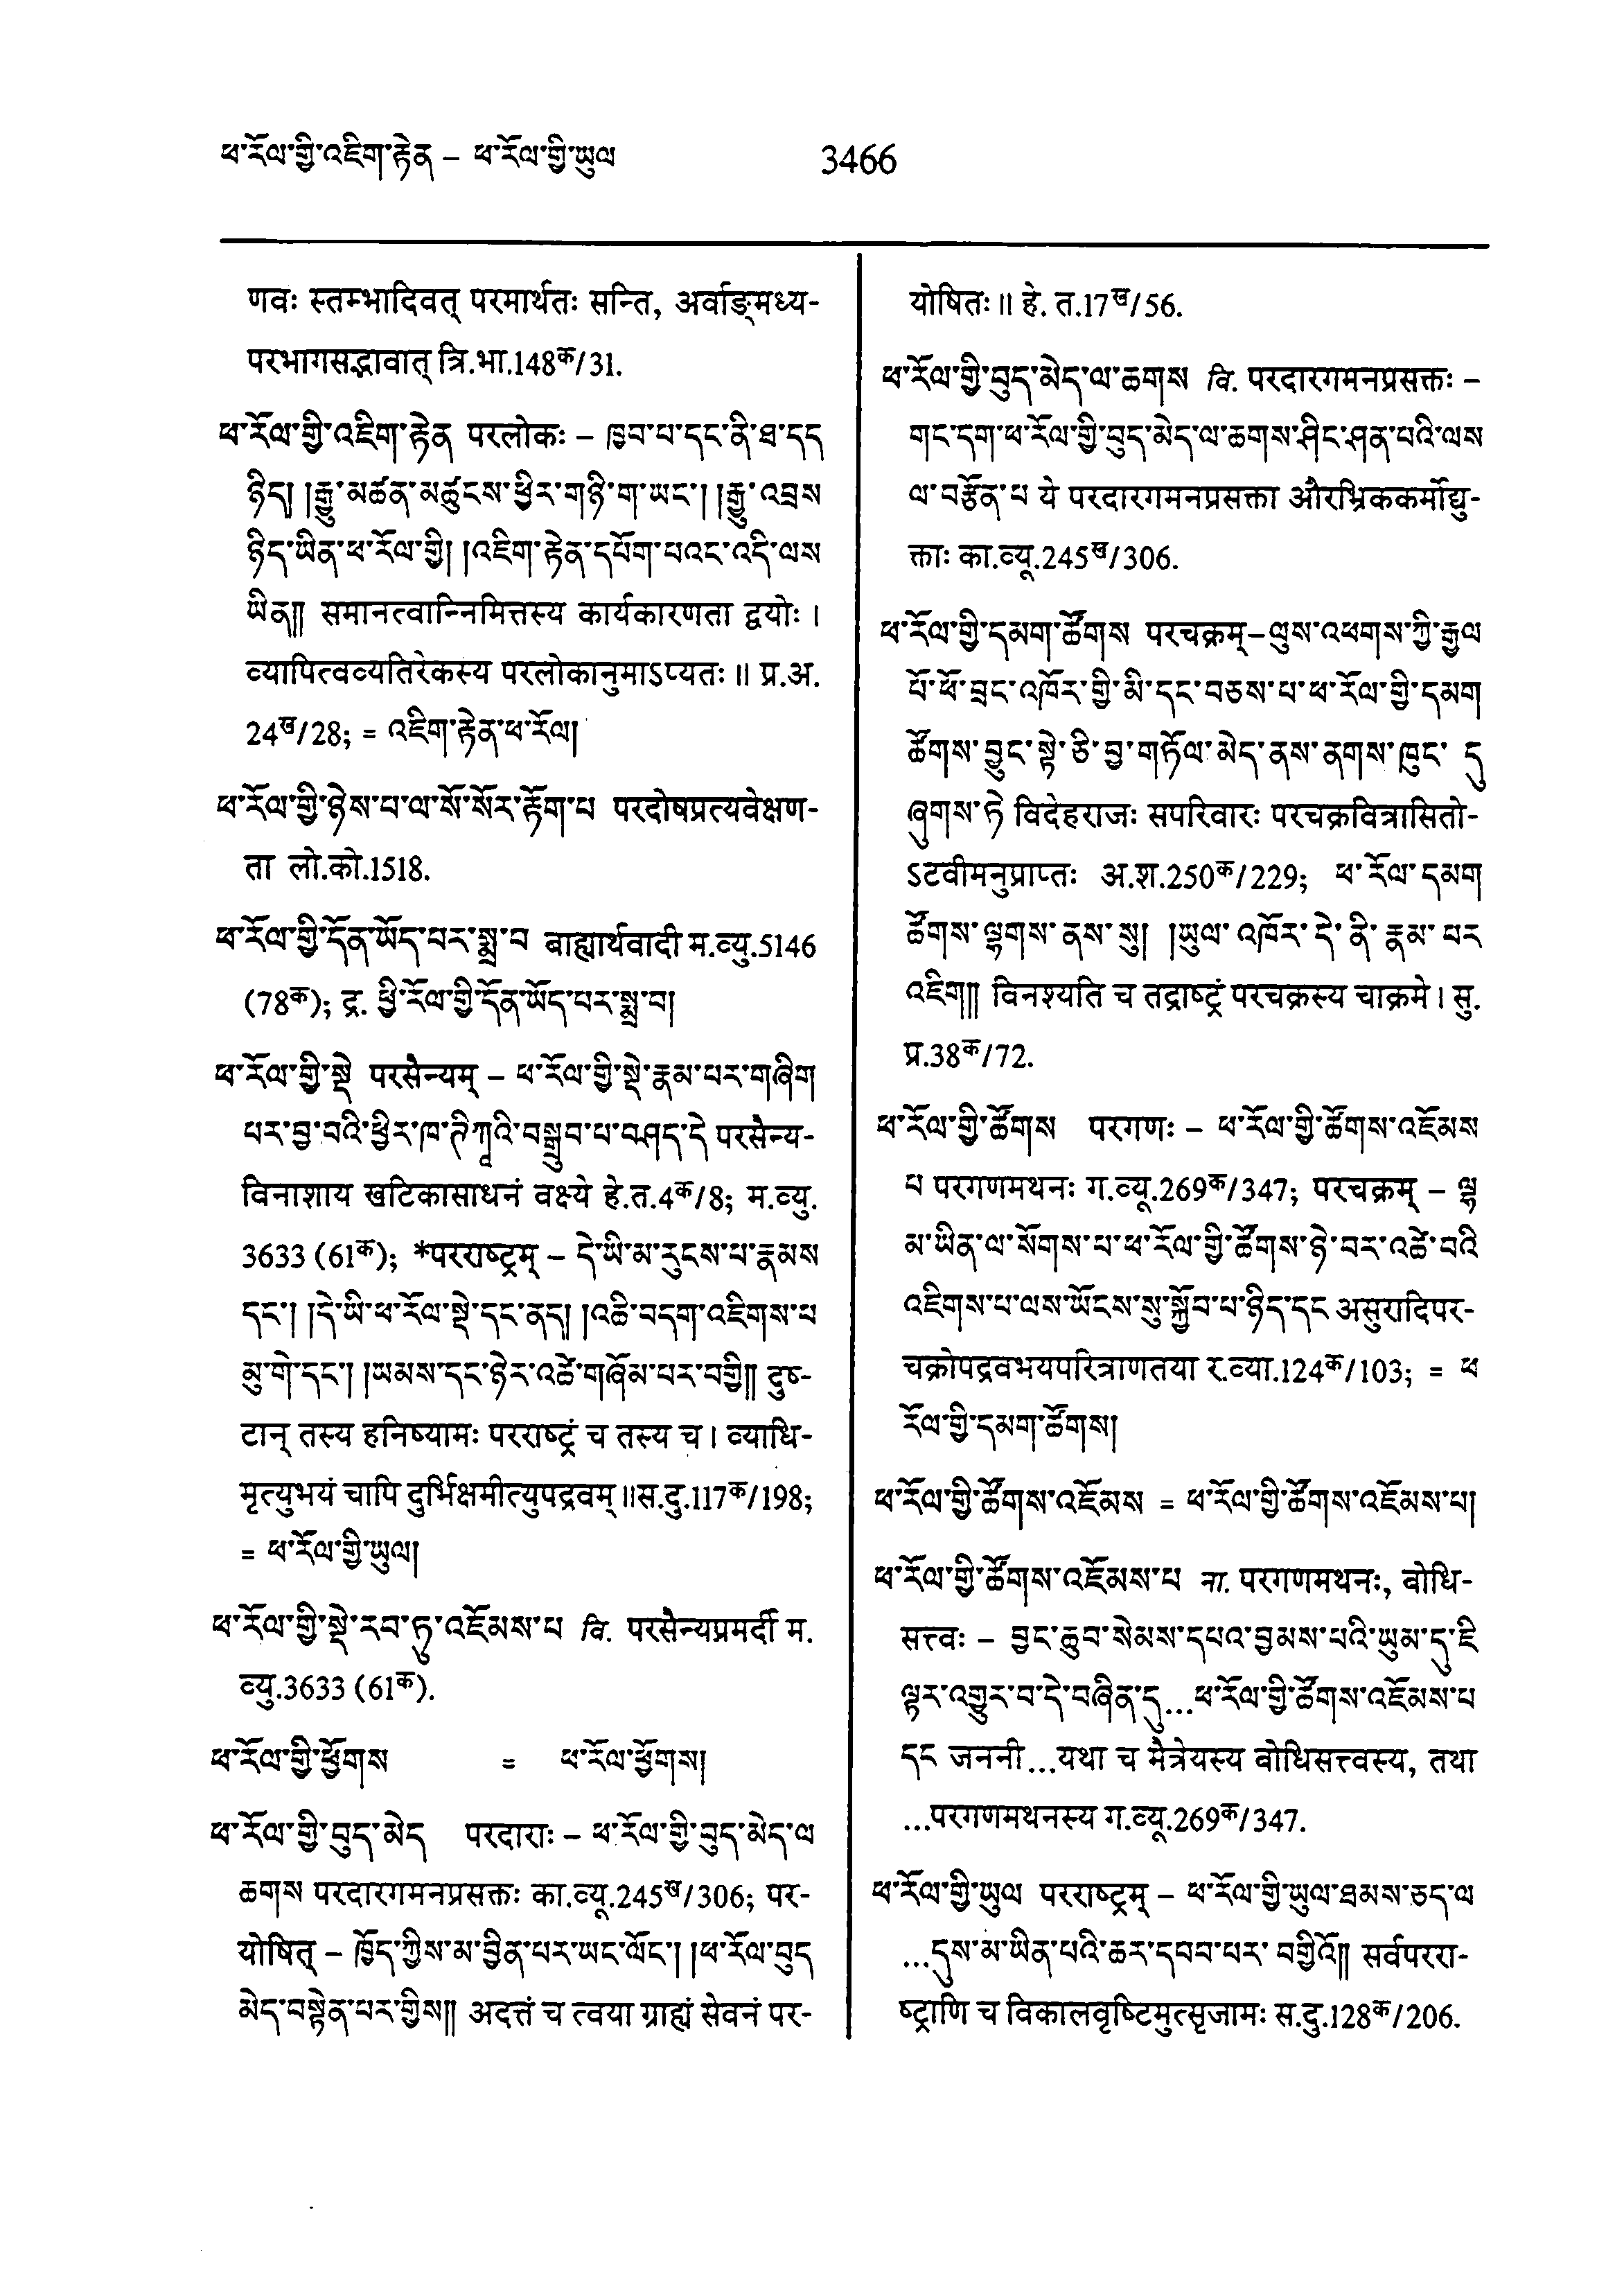 ཕ་རོལ་གྱི་འཇིག་རྟེན – ཕ་རོལ་གྱི་ཡུལ
3466
णवः स्तम्भादिवत् परमार्थतः सन्ति, अर्वाङ्मध्य-
परभागसद्भावात् त्रि.भा.148क/31.
ཕ་རོལ་གྱི་འཇིག་རྟེན परलोकः – ཁྱབ་པ་དང་ནི་ཐ་དད
ཉིད། །རྒྱུ་མཚན་མཚུངས་ཕྱིར་གཉི་ག་ཡང་། །རྒྱུ་འབྲས
ཉིད་ཡིན་ཕ་རོལ་གྱི། །འཇིག་རྟེན་དཔོག་པའང་འདི་ལས
ཡིན།། समानत्वान्निमित्तस्य कार्यकारणता द्वयोः ।
व्यापित्वव्यतिरेकस्य परलोकानुमाऽप्यतः ॥ प्र.अ.
24ख/28; = འཇིག་རྟེན་ཕ་རོལ།
ཕ་རོལ་གྱི་ཉེས་པ་ལ་སོ་སོར་རྟོག་པ परदोषप्रत्यवेक्षण-
ता लो.को.1518.
ཕ་རོལ་གྱི་དོན་ཡོད་པར་སྨྲ་བ बाह्यार्थवादी म.व्यु.5146
(78क); द्र. ཕྱི་རོལ་གྱི་དོན་ཡོད་པར་སྨྲ་བ།
ཕ་རོལ་གྱི་སྡེ परसैन्यम् – ཕ་རོལ་གྱི་སྡེ་རྣམ་པར་གཞིག
པར་བྱ་བའི་ཕྱིར་ཁ་ཊི་ཀཱའི་བསྒྲུབ་པ་བཤད་དེ परसैन्य-
विनाशाय खटिकासाधनं वक्ष्ये हे.त.4क/8; म.व्यु.
3633 (61क); *परराष्ट्रम् – དེ་ཡི་མ་རུངས་པ་རྣམས
དང་། །དེ་ཡི་ཕ་རོལ་སྡེ་དང་ནད། །འཆི་བདག་འཇིགས་པ
མུ་གེ་དང་། །ཡམས་དང་ཉེར་འཚེ་གཞོམ་པར་བགྱི།། दुष्-
टान् तस्य हनिष्यामः परराष्ट्रं च तस्य च । व्याधि-
मृत्युभयं चापि दुर्भिक्षमीत्युपद्रवम् ॥स.दु.117क/198;
= ཕ་རོལ་གྱི་ཡུལ།
ཕ་རོལ་གྱི་སྡེ་རབ་ཏུ་འཇོམས་པ वि. परसैन्यप्रमर्दी म.
व्यु.3633 (61क).
ཕ་རོལ་གྱི་ཕྱོགས = ཕ་རོལ་ཕྱོགས།
ཕ་རོལ་གྱི་བུད་མེད परदाराः – ཕ་རོལ་གྱི་བུད་མེད་ལ
ཆགས परदारगमनप्रसक्तः का.व्यू.245ख/306; पर-
योषित् – ཁྱོད་ཀྱིས་མ་བྱིན་པར་ཡང་ལོང་། །ཕ་རོལ་བུད
མེད་བསྟེན་པར་གྱིས།། अदत्तं च त्वया ग्राह्यं सेवनं पर-
योषितः॥ हे. त.17ख/56.
ཕ་རོལ་གྱི་བུད་མེད་ལ་ཆགས वि. परदारगमनप्रसक्तः –
གང་དག་ཕ་རོལ་གྱི་བུད་མེད་ལ་ཆགས་ཤིང་ཤན་པའི་ལས
ལ་བརྩོན་པ ये परदारगमनप्रसक्ता औरभ्रिककर्मोद्यु-
क्ताः का.व्यू.245ख/306.
ཕ་རོལ་གྱི་དམག་ཚོགས परचक्रम्–ལུས་འཕགས་ཀྱི་རྒྱལ
པོ་ཕོ་བྲང་འཁོར་གྱི་མི་དང་བཅས་པ་ཕ་རོལ་གྱི་དམག
ཚོགས་བྱུང་སྟེ་ཅི་བྱ་གཏོལ་མེད་ནས་ནགས་ཁུང་ དུ
ཞུགས་ཏེ विदेहराजः सपरिवारः परचक्रवित्रासितो-
ऽटवीमनुप्राप्तः अ.श.250क/229; ཕ་རོལ་དམག
ཚོགས་ལྷགས་ནས་སུ། །ཡུལ་འཁོར་དེ་ནི་རྣམ་པར
འཇིག།། विनश्यति च तद्राष्ट्रं परचक्रस्य चाक्रमे । सु.
प्र.38क/72.
ཕ་རོལ་གྱི་ཚོགས परगणः – ཕ་རོལ་གྱི་ཚོགས་འཇོམས
པ परगणमथनः ग.व्यू.269क/347; परचक्रम् – ལྷ
མ་ཡིན་ལ་སོགས་པ་ཕ་རོལ་གྱི་ཚོགས་ཉེ་བར་འཚེ་བའི
འཇིགས་པ་ལས་ཡོངས་སུ་སྐྱོབ་པ་ཉིད་དང असुरादिपर-
चक्रोपद्रवभयपरित्राणतया र.व्या.124क/103; = ཕ
རོལ་གྱི་དམག་ཚོགས།
ཕ་རོལ་གྱི་ཚོགས་འཇོམས = ཕ་རོལ་གྱི་ཚོགས་འཇོམས་པ།
ཕ་རོལ་གྱི་ཚོགས་འཇོམས་པ ना. परगणमथनः, बोधि-
सत्त्वः – བྱང་ཆུབ་སེམས་དཔའ་བྱམས་པའི་ཡུམ་དུ་ཇི
ལྟར་འགྱུར་བ་དེ་བཞིན་དུ...ཕ་རོལ་གྱི་ཚོགས་འཇོམས་པ
དང जननी...यथा च मैत्रेयस्य बोधिसत्त्वस्य, तथा
...परगणमथनस्य ग.व्यू.269क/347.
ཕ་རོལ་གྱི་ཡུལ परराष्ट्रम् – ཕ་རོལ་གྱི་ཡུལ་ཐམས་ཅད་ལ
...དུས་མ་ཡིན་པའི་ཆར་དབབ་པར་ བགྱིའོ།། सर्वपररा-
ष्ट्राणि च विकालवृष्टिमुत्सृजामः स.दु.128क/206.